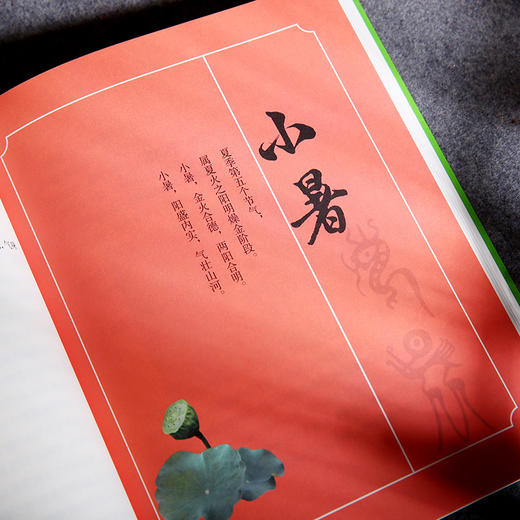 小暑
夏季第五个节气，
属夏火之阳明燥金阶段。
小暑，金火合德，两阳合明。
小暑，阳盛内实，气壮山河。